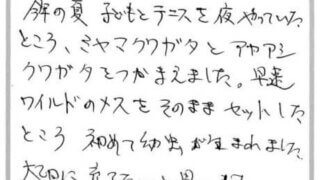 今年の夏 子どもとテニスを夜やっていた
ところ、ミヤマクワガタとアカアシ
クワガタをつかまえました。早速
ワイルドのメスをそのままセットした
ところ 初めて幼虫が生まれました
大切に育てたいと思います